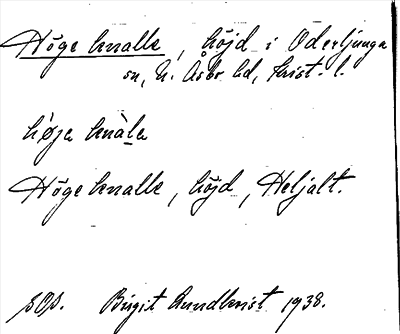 Höge knalle, höjd i Oderljunga
sn, N. Åsbo hd, Krist. l.
hø̀ja knàla
Höge knalle, höjd, Heljalt.
sOp. Birgit Lundkvist 1938.